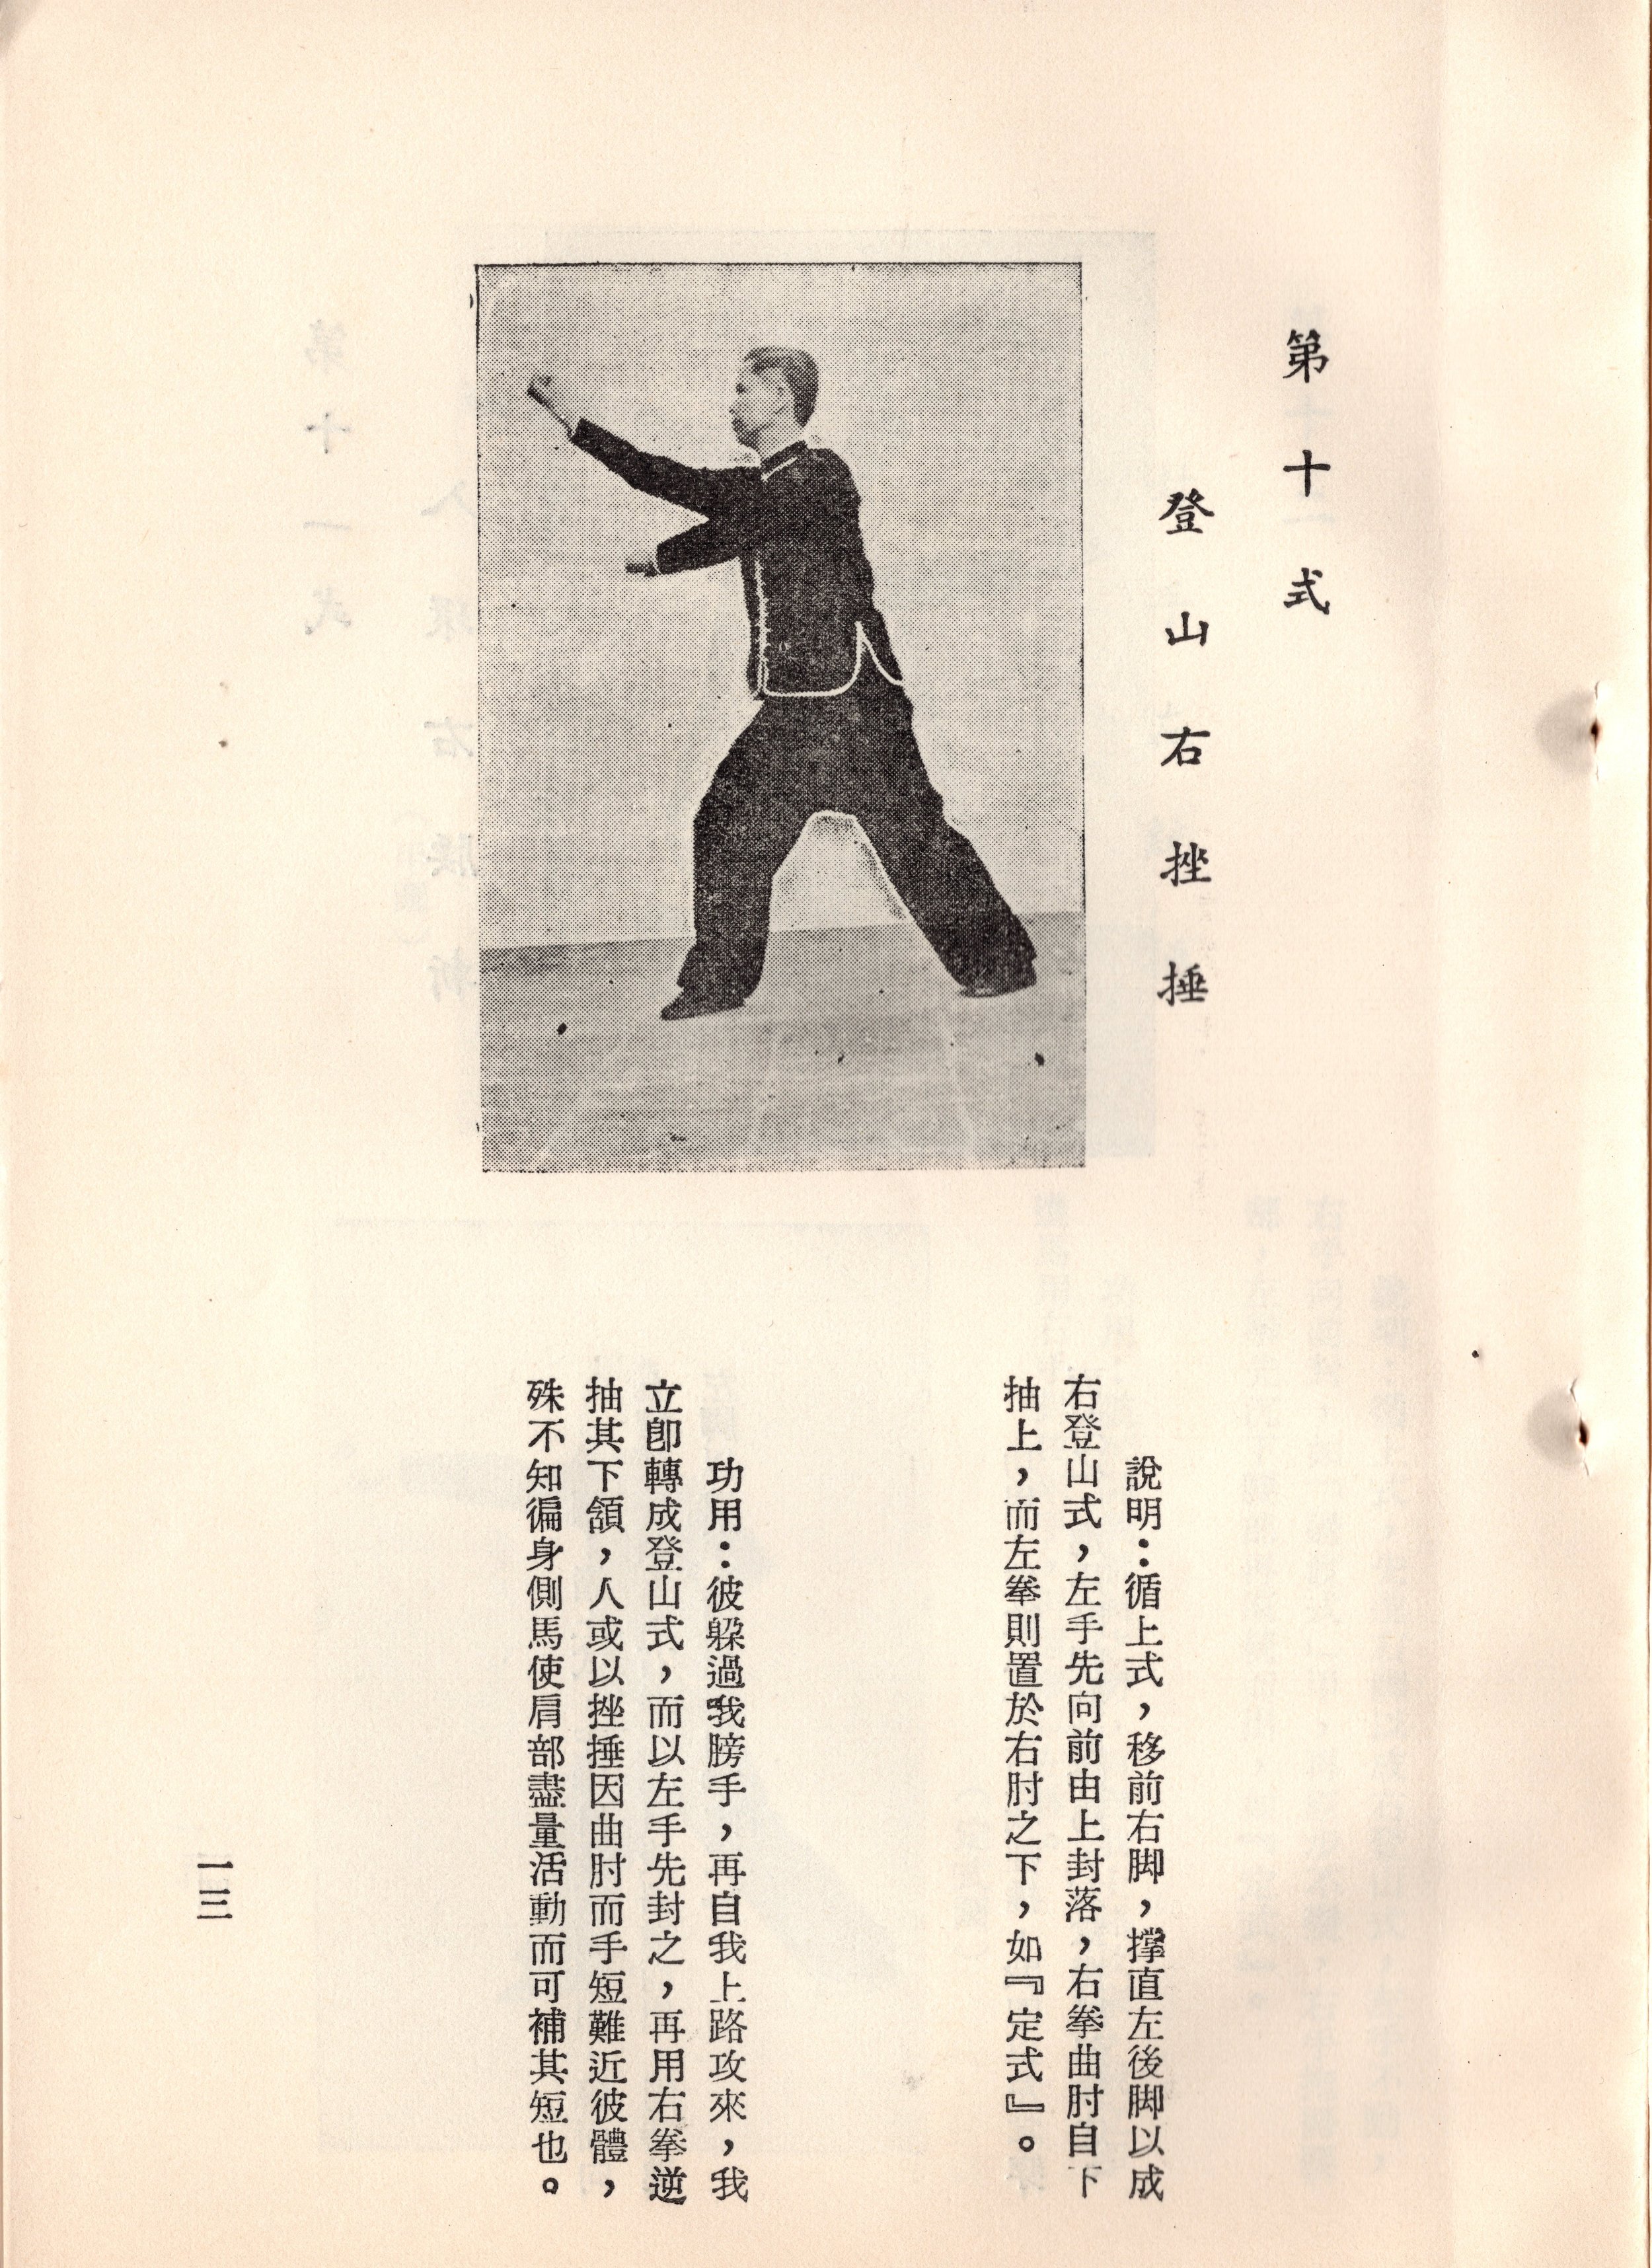 第十式
登山右挫捶
說明：循上式，移前右脚，撑直左後脚以成
右登山式，左手先向前由上封落，右拳曲肘自下
抽上，而左拳則置於右肘之下，如『定式』。
功用：彼躲過我膀手，再自我上路攻來，我
立即轉成登山式，而以左手先封之，再用右拳逆
抽其下頷，人或以挫捶因曲肘而手短難近彼體，
殊不知徧身側馬使肩部盡量活動而可補其短也。
一三